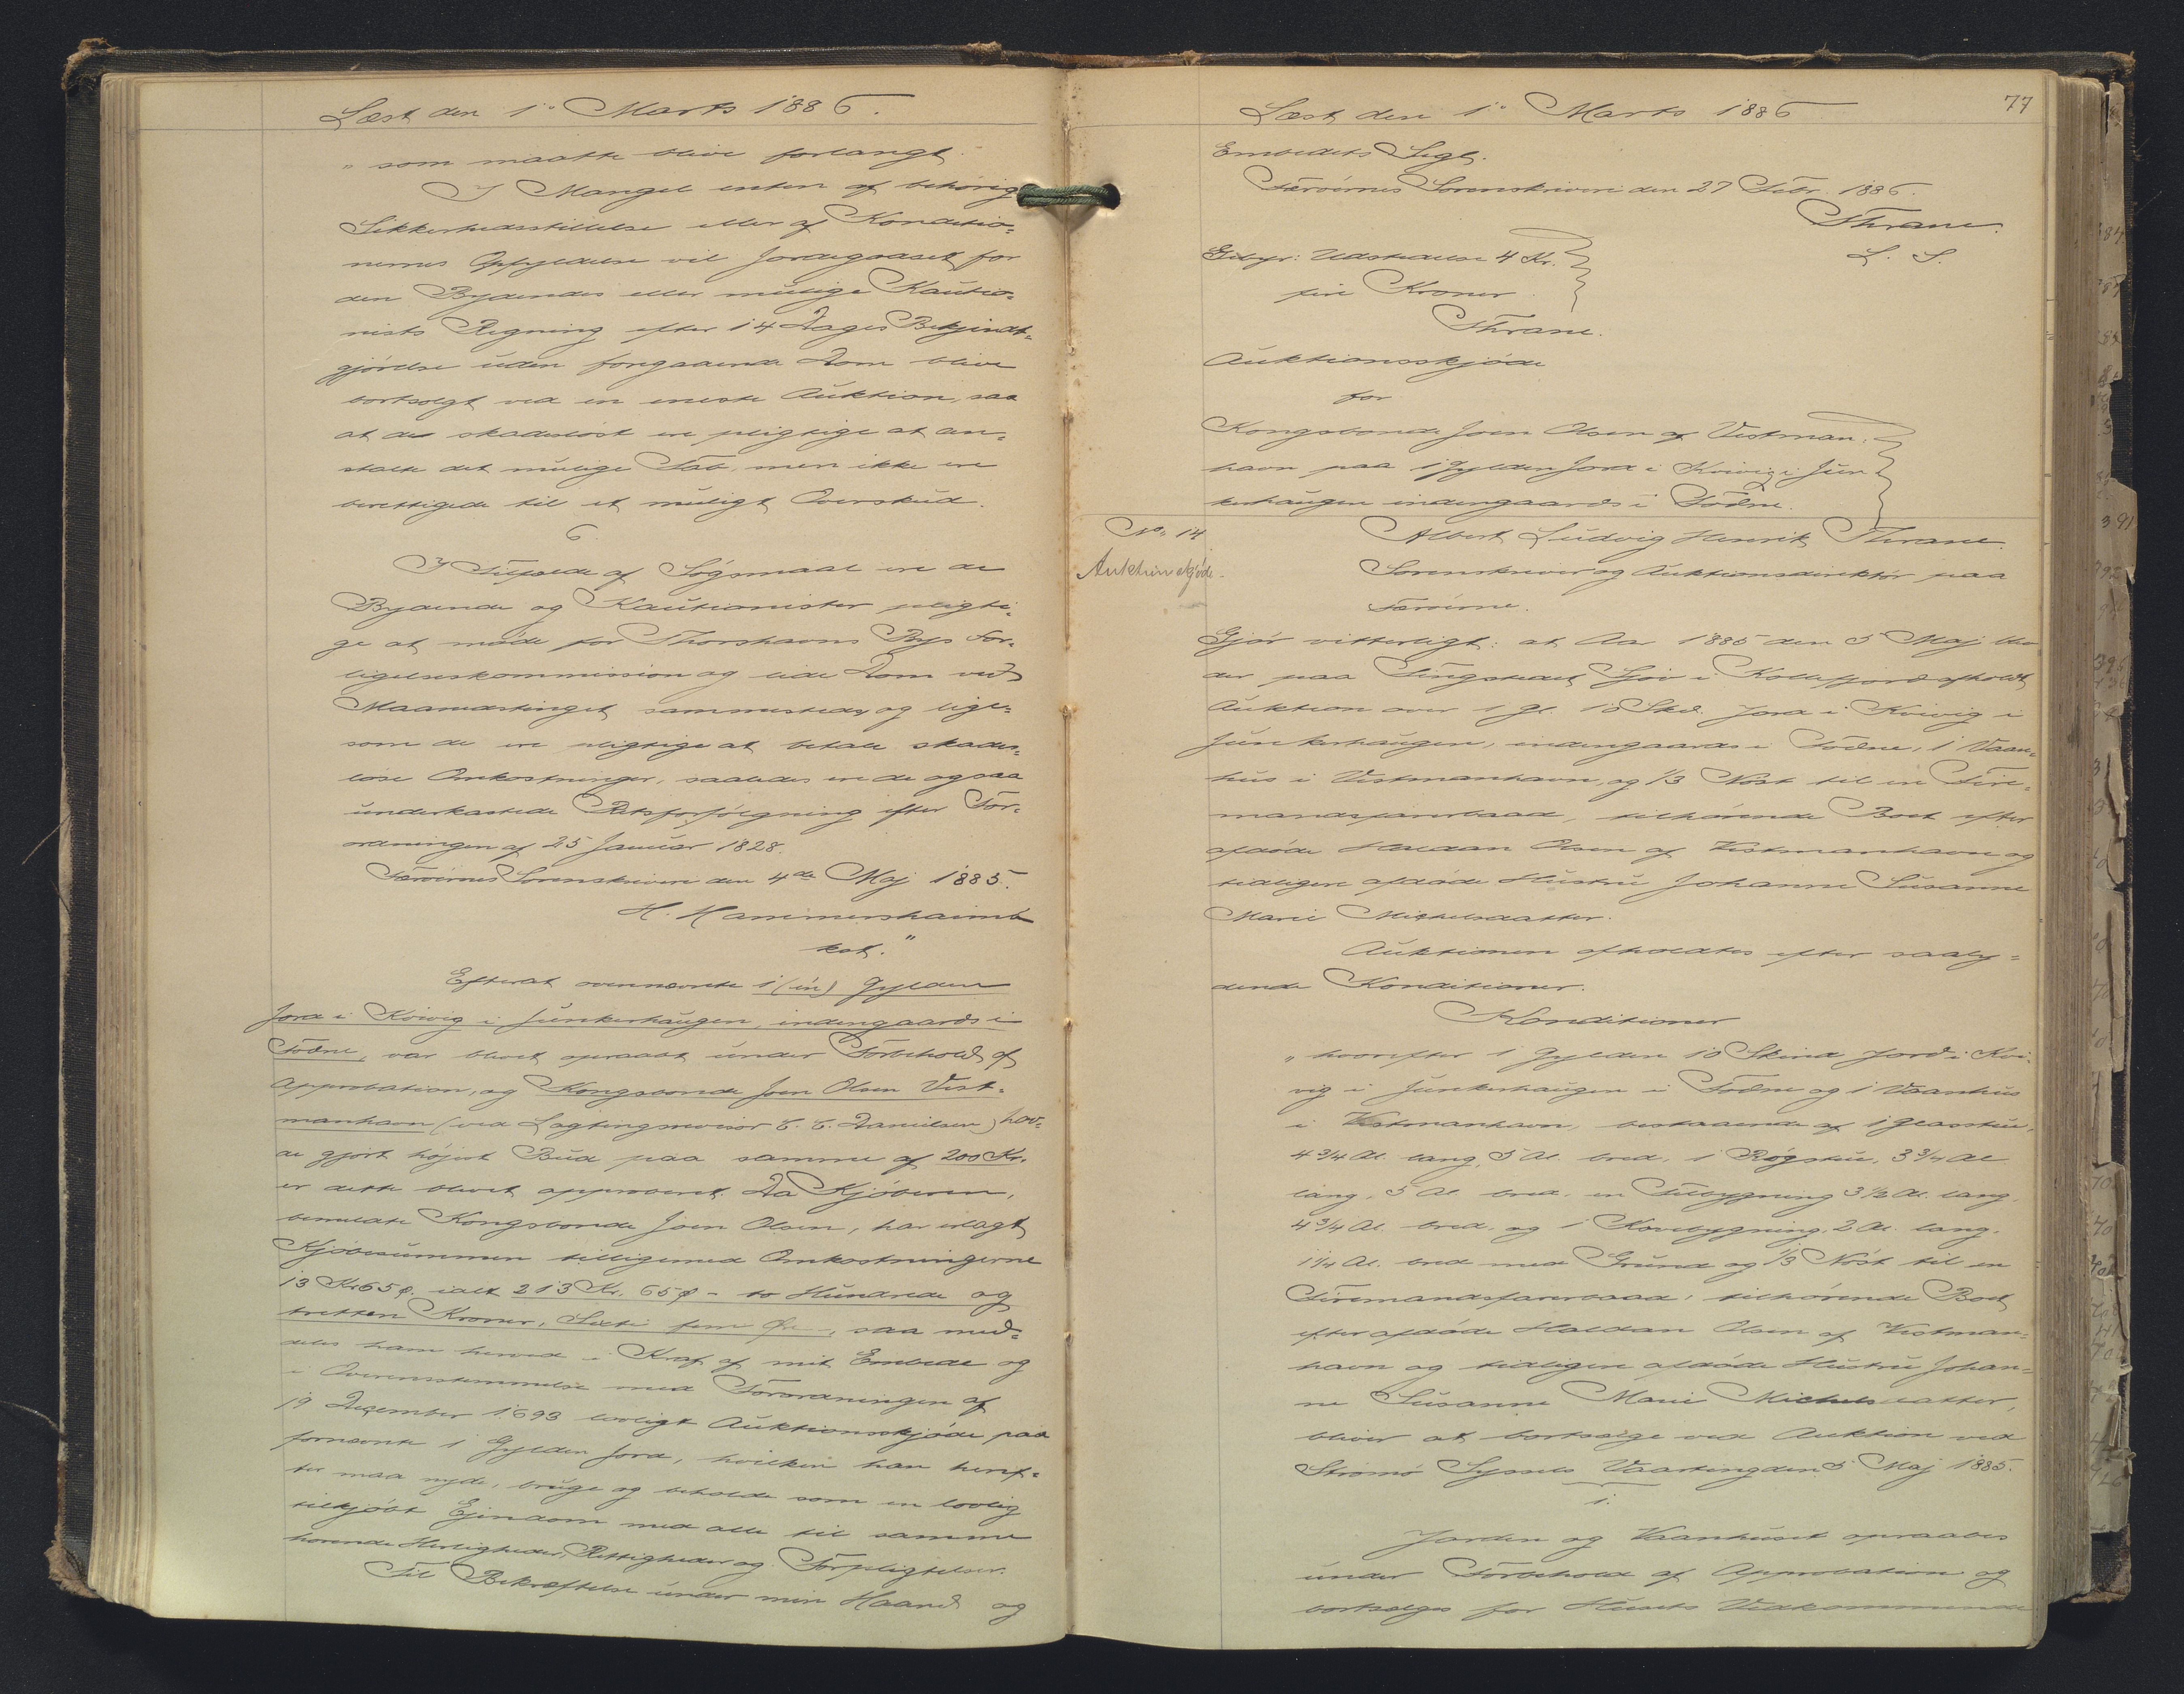 Læst den 1° Marts 1886.
„ som maatte blive forlangt.
I Mangel enten af behørig
Sikkerhedsstillelse eller af Konditio=
nernes Opfyldelse vil Jordegodset for
den Bydendes eller mulige Kautio=
nists Regning efter 14 Dages Bekjendt=
gjørelse uden foregaaende Dom blive
bortsolgt ved en eneste Auktion, saa
at de skadesløst ere pligtige at an=
stalte det mulige Tab, men ikke ere
berettigede til et muligt Overskud.
6.
I Tilfælde af Søgsmaal ere de
Bydende og Kautionister pligti=
ge at møde for Thorshavns Bys For=
ligelseskommission og lide Dom ved
Maanedstinget sammesteds, og lige=
som de ere pligtige at betale skades=
løse Omkostninger, saaledes ere de ogsaa
underkastede Retsforfølgning efter For=
ordningen af 25 Januar 1828.
Færøernes Sorenskriveri den 4de Maj 1885.
H. Hammershaimb
kst."
Efterat ovennævnte 1 (én) Gylden
Jord i Kvivig i Junkerhaugen, indengaards i
Tødne, var blevet opraabt under Forbehold af
Approbation, og Kongsbonde Joen Olsen Vest=
manhavn (ved Lagtingsrevisor E. E. Danielsen) hav=
de gjort højest Bud paa samme af 200 Kr.
er dette blevet approberet. Da Kjøberen,
bemeldte Kongsbonde Joen Olsen, har erlagt
Kjøbesummen tilligemed Omkostningerne
13 Kr 65 ø. ialt 213 Kr. 65 ø - to Hundrede og
tretten Kroner, Sexti fem Øre, saa med=
deles ham herved i Kraft af mit Embede og
i Overensstemmelse med Forordningen af
19 December 1693 lovligt Auktionsskjøde paa
fornævnte 1 Gylden Jord, hvilken han heref=
ter maa nyde, bruge og beholde som en lovlig
tilkjøbt Ejendom med alle til samme
hørende Herligheder, Rettigheder og Forpligtelser.
Til Bekræftelse under min Haand og
77
Læst den 1° Marts 1886
Embedets Segl.
Færøernes Sorenskriveri den 27 Febr. 1886.
Thrane.
L. S.
Gebyr: Udstedelse 4 Kr.
fire Kroner
Thrane.
Auktionsskjøde
for
Kongsbonde Joen Olsen af Vestman=
havn paa 1 Gylden Jord i Kvivig i Jun
kerhaugen indengaards i Tødne.
No. 14
Auktionsskjøde
Albert Ludvig Henrik Thrane.
Sorenskriver og Auktionsdirektør paa
Færøerne.
Gjør vitterligt: at Aar 1885 den 5 Maj blev
der paa Tingstedet Sjov i Kollefjord afholdt
Auktion over 1 Gl. 10 Skd. Jord i Kvivig i
Junkerhaugen, indengaards i Tødne, 1 Vaan=
hus i Vestmanhavn, og 1/3 Nøst til en Fire=
mandsfarerbaad, tilhørende Boet efter
afdøde Haldan Olsen af Vestmanhavn og
tidligere afdøde Hustru Johanne Susanne
Marie Michelsdatter.
Auktionen afholdtes efter saaly=
dende Konditioner.
Konditioner
„ hvorefter 1 Gylden 10 Skind Jord i Kvi=
vig i Junkerhaugen i Tødne og 1 Vaanhus
i Vestmanhavn, bestaaende af 1 Glasstue,
4 3/4 Al. lang, 5 Al. bred, 1 Røgstue, 3 3/4 Al
lang, 5 Al. bred, en Tilbygning 3 1/2 Al. lang,
4 3/4 Al. bred, og 1 Kovebygning, 2 Al. lang,
1 1/4 Al. bred med Grund og 1/3 Nøst til en
Firemandsfarerbaad, tilhørende Boet
efter afdøde Haldan Olsen af Vestman=
havn og tidligere afdøde Hustru Johan=
ne Susanne Marie Michelsdatter,
bliver at bortsælge ved Auktion ved
Strømø Syssels Vaarting den 5 Maj 1885.
1.
Jorden og Vaanhuset opraabes
under Forbehold af Approbation og
bortsælges for Husets Vedkommende